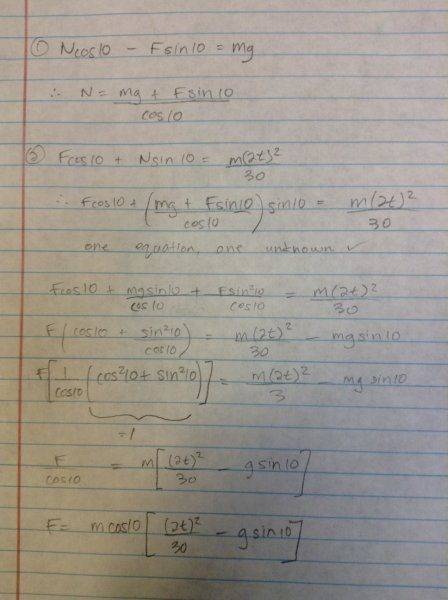 ① Ncos10 - Fsin10 = mg
∴ N = (mg + Fsin10)/cos10
② Fcos10 + Nsin10 = m(2t)²/30
∴ Fcos10 + ((mg + Fsin10)/cos10) sin10 = m(2t)²/30
one equation, one unknown ✓
Fcos10 + mgsin10/cos10 + Fsin²10/cos10 = m(2t)²/30
F(cos10 + sin²10/cos10) = m(2t)²/30 - mgsin10
F[1/cos10 (cos²10 + sin²10)] = m(2t)²/3 - mgsin10
=1
F/cos10 = m[(2t)²/30 - gsin10]
F = mcos10[(2t)²/30 - gsin10]